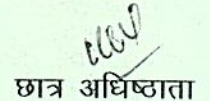 छात्र अधिष्ठाता